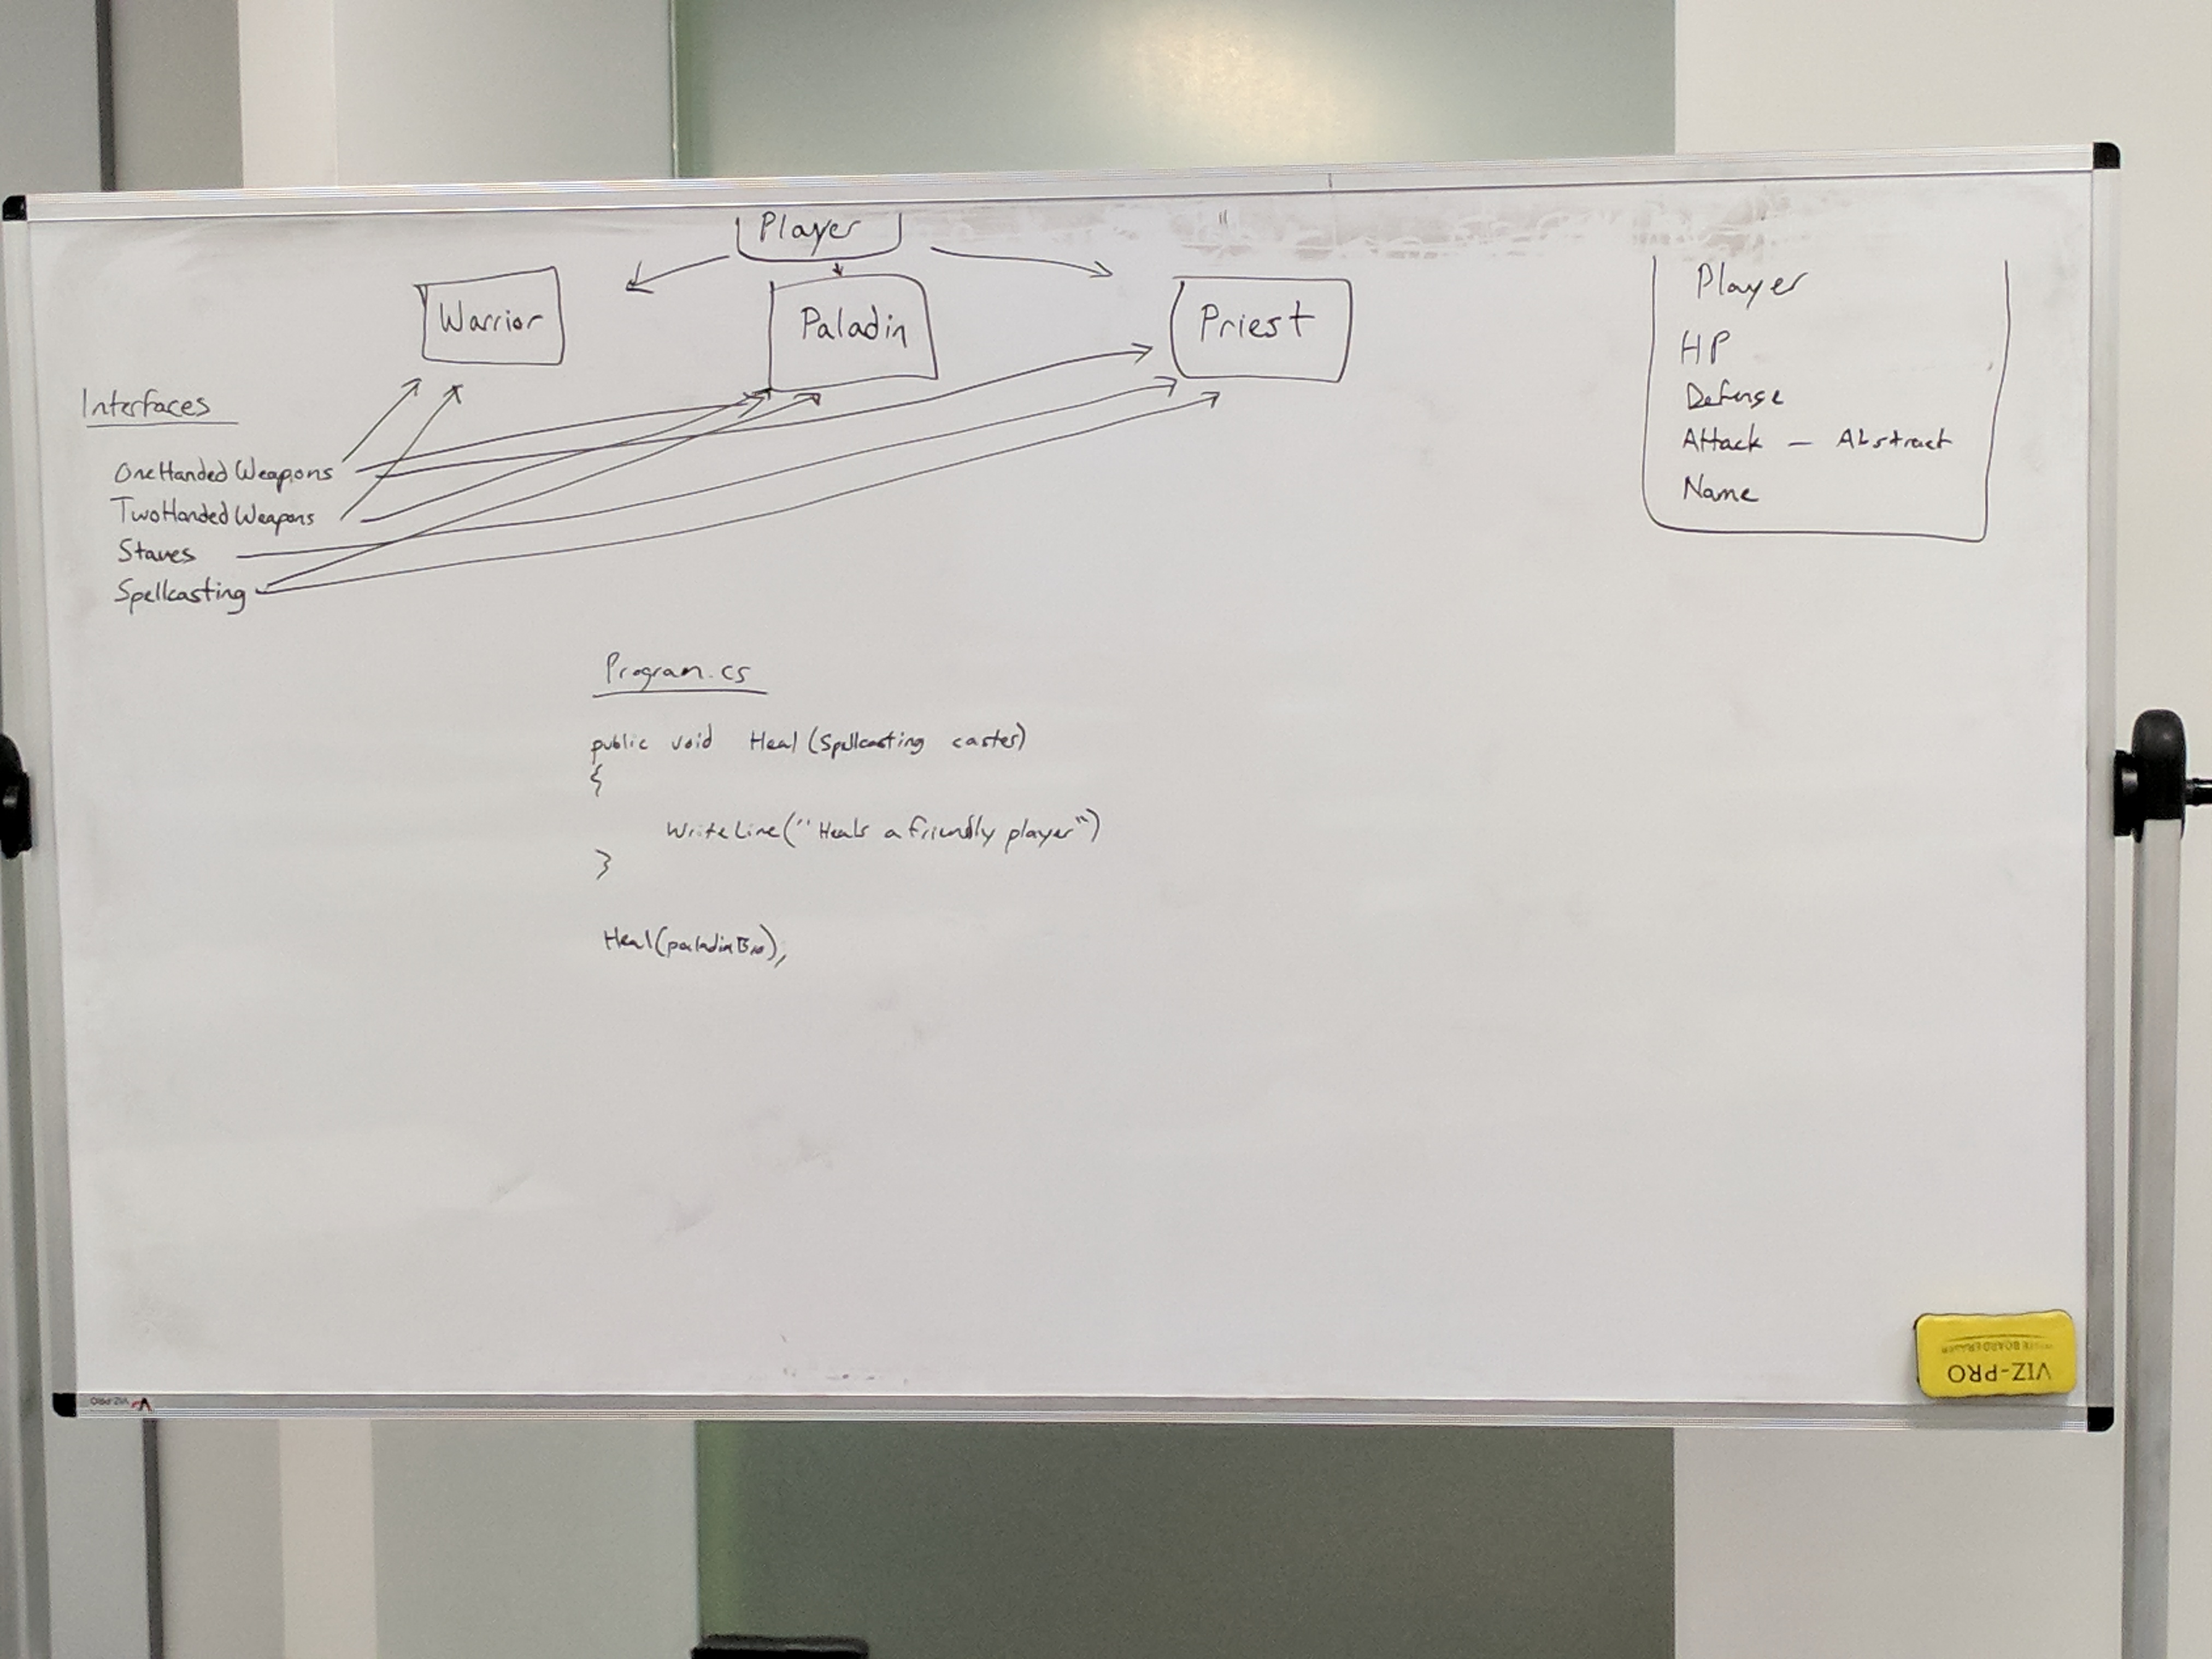 Player
Warrior
Paladin
Priest
Interfaces
OneHanded Weapons
TwoHanded Weapons
Staves
Spellcasting
Player
HP
Defense
Attack — Abstract
Name
Program.cs
public void Heal (Spellcasting caster)
{
WriteLine("Heals a friendly player")
}
Heal(paladinBro);
VIZ-PRO
WHITE BOARD ERASER
VIZ-PRO